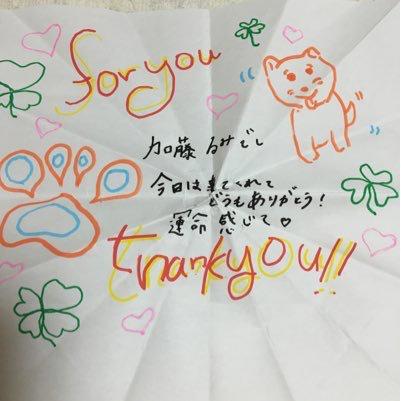 for you
加藤るみどし
今日は来てくれて
どうもありがとう!
運命感じて♡
thank you!!